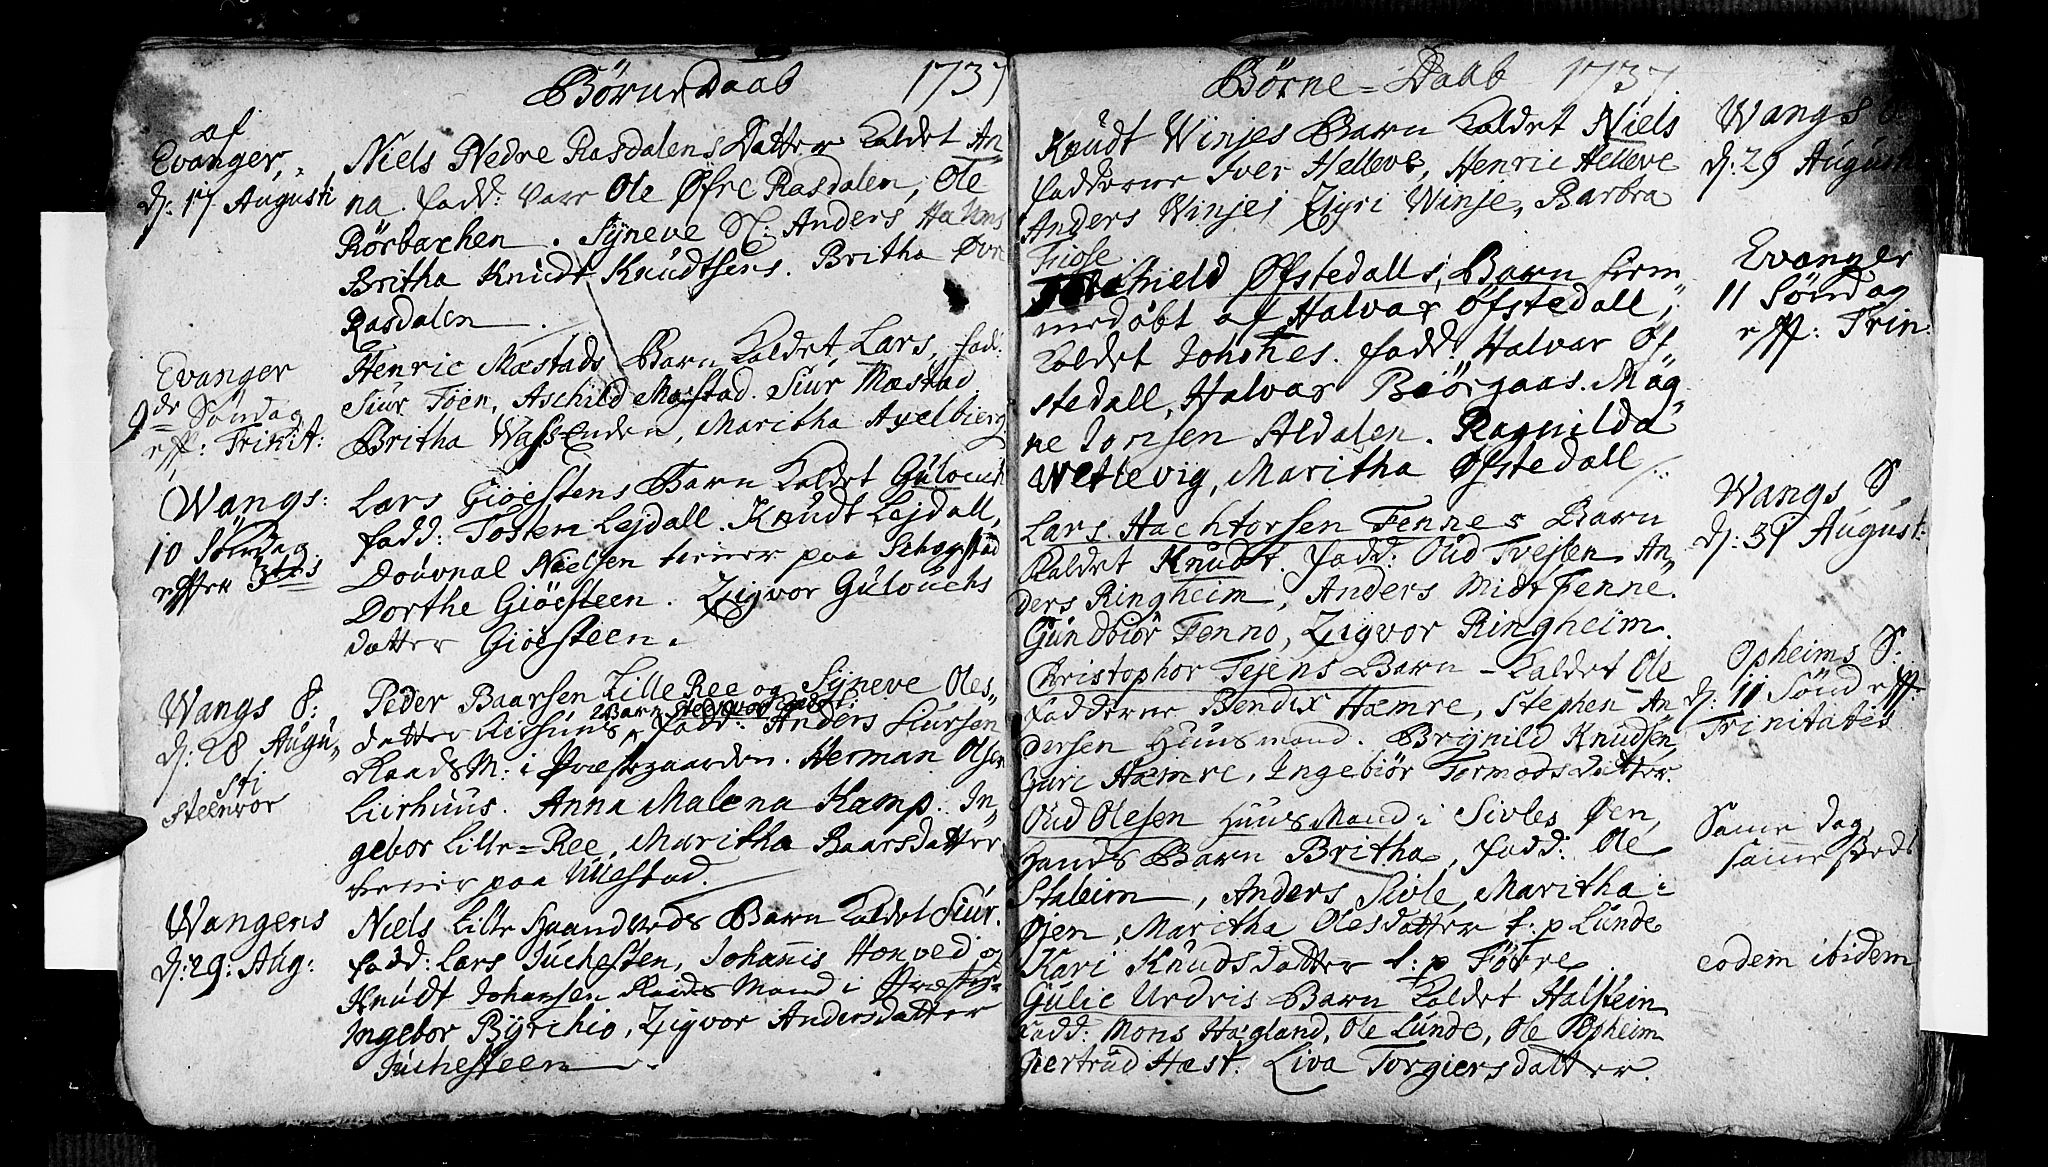 Børne Daab 1737
af
Evanger,
d: 17 Augusti
Niels Nedre Rasdalens Datter Kaldet An-
na. fadd: vare Ole Øfre Rasdalen, Ole
Rörbachen. Syneve Sl: Anders
Britha Knudt Knudtsens. Britha Øvre
Rasdalen.
Evanger
9de Søndag
eff: Trinit:
Henric Mæstads Barn Kaldet Lars, fad:
Siur Töen, Aschild Mæstad. Siur Mæstad
Britha Wassenden, Maritha Axelbierg
Wangs:
10 Söndag
efter 3tis
Lars Giöestens Barn Kaldet
fadd: Tosten Lejdall. Knudt Lejdall,
Nielsen tiener paa
Dorthe Giöesteen. Zigvor Gulouchs
datter Giöesteen.
Wangs S:
d: 28 Augu-
sti
Steenvor
Peder Baarsen Lille Ree og Syneve Oles-
datter Barn Steenvor fadd: Anders Siursøn
M: i Præstegaarden. Herman Olsen
Anna Malena Kamp. In-
gebor Lille=Ree, Maritha Baarsdatter
tiener paa
Wangens
d: 29: Aug:
Niels Lille Haandveds Barn Kaldet Siur.
fadd: Lars Juchesten, Johannis Honved og
Knudt Johansen Mand i
Ingebor Byrchio, Zigvor Andersdatter
Juchesteen.
Børne=Daab 1737
Knudt Winjes Barn Kaldet Niels
Fadderne Iver Helleve, Henric Helleve
Anders Winjes Zyri Winje, Barbra
Wangs
d: 29 Augusti
Öfstedalls Barn hiem-
medöbt af Halvar Öfstedall,
Kaldet Johanes. fadd: Halvar Öf-
stedall, Halvar Biörgaas. Mag-
ne Jonsen Aldalen. Ragnilda
Wetlevig, Maritha Öfstedall
Evanger
11 Söndag
eff: Trin:
Lars Hachtorsen Fennes Barn
Kaldet Knudt. fadd: Oud Tvejten An-
ders Ringheim, Anders Midt Fenne.
Gundbiör Fenno, Zigvor Ringheim.
Wangs S.
d: 31 August:
Christophor Tejens Barn Kaldet Ole
Fadderne Bendix Hæmre, Stephen An-
dersen Huusmand. Brynild Knudsen,
Guri Hæmre, Ingebiör Tormodsdatter.
Opheims S:
d: 11 Sönd eff:
Trinitatis
Oud Olesen Huus Mand i Sivles Øen,
Hands Barn Britha, fadd: Ole
Staleim, Anders Sivle, Maritha i
Øjen, Maritha Olesdatter t: p Lunde
Kari Knudsdatter t: p Förre
Same dag,
same stæd
Gulic Urdris Barn Kaldet Halstein
Fadd: Mons Hægland, Ole Lunde, Ole Opheim
Giertrud Hæst. Liva Torgiersdatter.
eodem ibidem